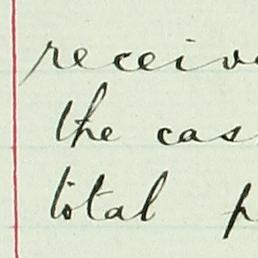 receiv
the cas
total p